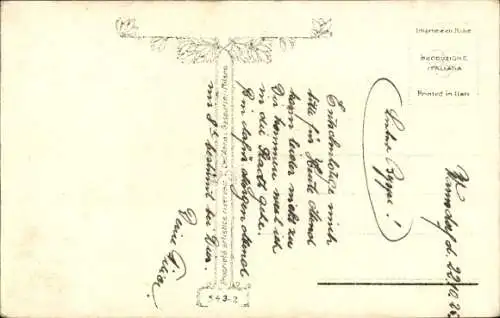 Imprimé en Italie
PRODUZIONE
ITALIANA
Printed in Italy
Warnsdorf d. 22.10.
Liebe
Entschuldige mich
bitte für Heute Abend
kann leider nicht zu
Dir kommen weil ich
in die Stadt gehe.
Bin dafür Morgen Abend
um 8h bestimmt bei Dir.
Deine
543-2